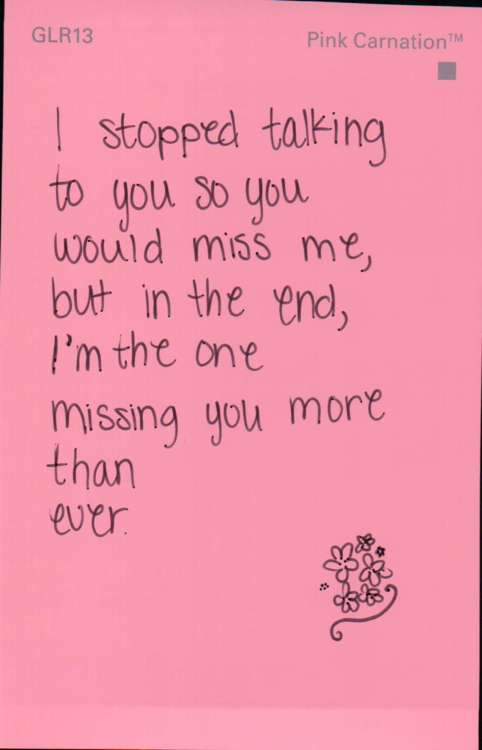 GLR13
Pink Carnation™
I stopped talking
to you so you
would miss me,
but in the end,
I'm the one
missing you more
than
ever.